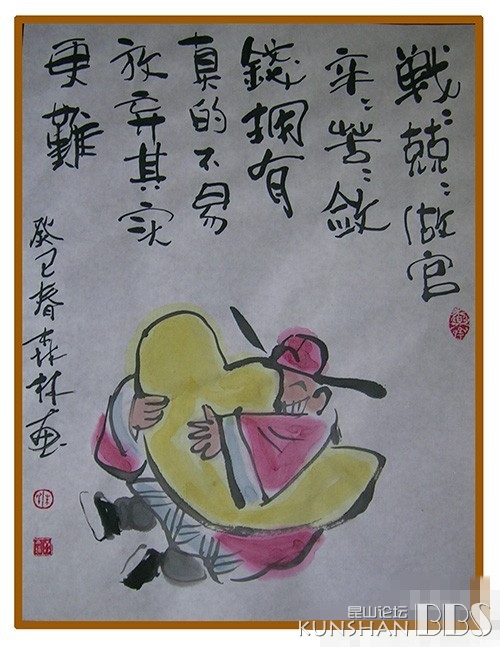 戦々兢々做官
辛々苦々敛
錢拥有
真的不易
放弃其实
更難
癸巳春森林画
昆山论坛
KUNSHAN BBS